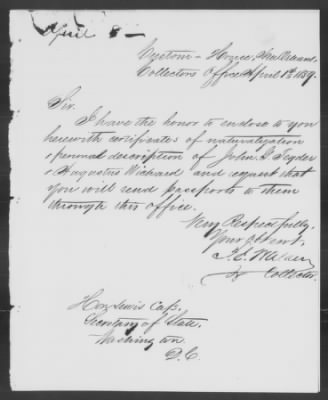 April 8 —
Custom - House, New Orleans.
Collectors Office April 1st 1859.
Sir.
I have the honor to enclose to you
herewith certificates of naturalization
& personal description of John G.
& Augustus Wichard and request that
you will send passports to them
through this office.
Very Respectfully,
Your Obt Servt.
Collector.
Hon Lewis Cass,
Secretary of State,
Washington
D.C.